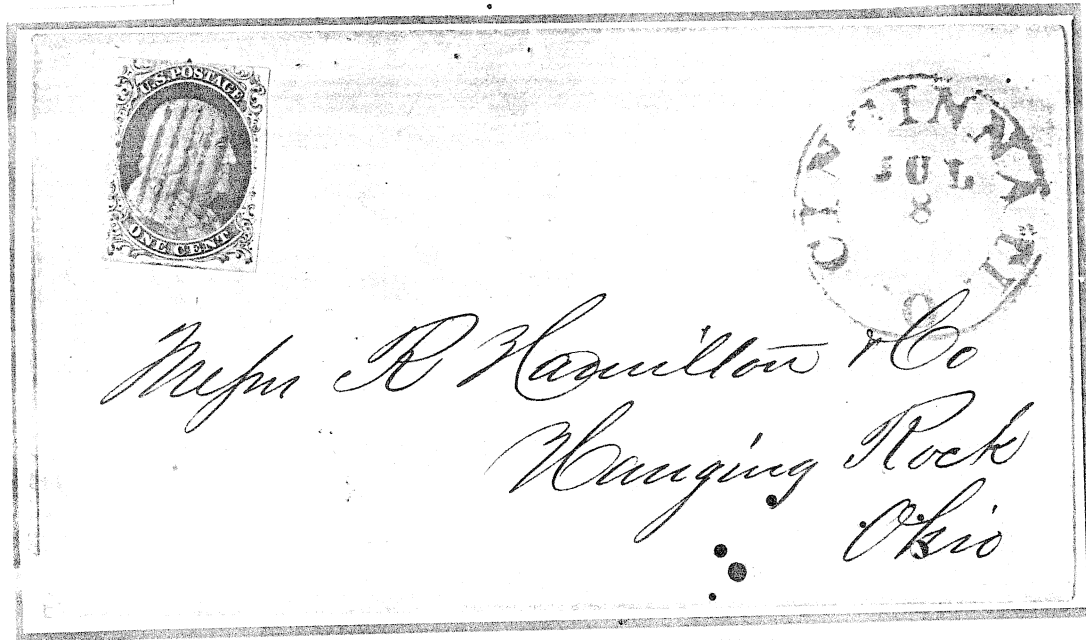 U.S. POSTAGE
ONE CENT
CINCINNATI O
JUL
8
Messrs R Hamilton & Co
Hanging Rock
Ohio